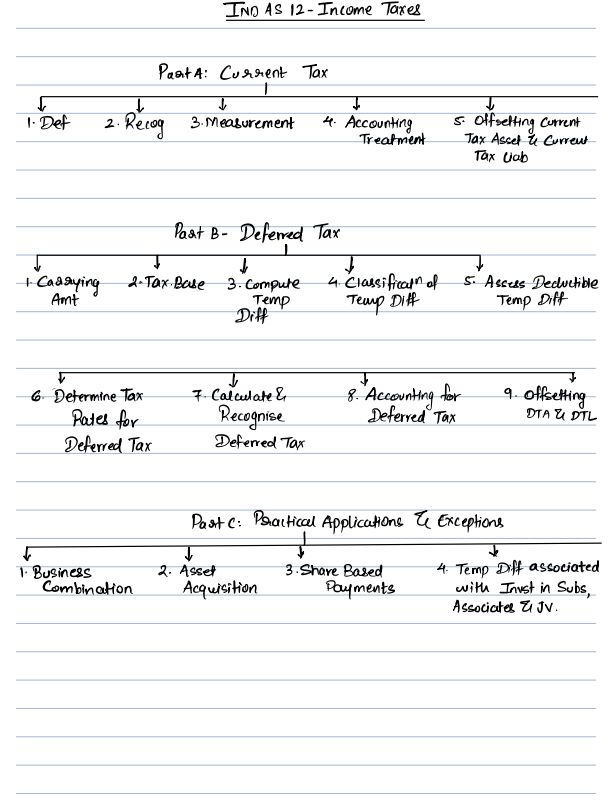 IND AS 12 - Income Taxes
Part A: Current Tax
1. Def 2. Recog 3. Measurement 4. Accounting 5. Offsetting Current
Treatment Tax Asset & Current
Tax Liab
Part B - Deferred Tax
1. Carrying 2. Tax Base 3. Compute 4. Classificatn of 5. Assess Deductible
Amt Temp Temp Diff Temp Diff
Diff
6. Determine Tax 7. Calculate & 8. Accounting for 9. Offsetting
Rates for Recognise Deferred Tax DTA & DTL
Deferred Tax Deferred Tax
Part C: Practical Applications & Exceptions
1. Business 2. Asset 3. Share Based 4. Temp Diff associated
Combination Acquisition Payments with Invst in Subs,
Associates & JV.